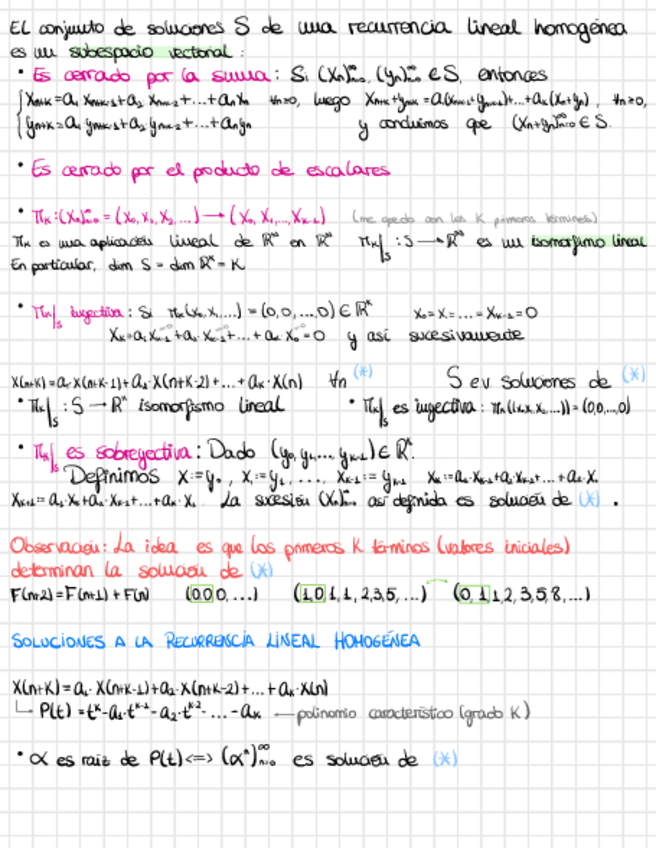 EL conjunto de soluciones S de una recurrencia lineal homogénea
es un subespacio vectorial :
· Es cerrado por la suma : Si (Xn)∞n=0, (yn)∞n=0 ∈ S, entonces
{ Xn+k = a₁ Xn+k-1 + a₂ Xn+k-2 + ... + akXn ∀n≥0, luego Xn+k + yn+k = a₁(Xn+k-1 + yn+k-1) + ... + ak(Xn+yn), ∀n≥0,
{ yn+k = a₁ yn+k-1 + a₂ yn+k-2 + ... + akyn y concluimos que (Xn+yn)∞n=0 ∈ S.
· Es cerrado por el producto de escalares
· πk : (Xn)∞n=0 = (X₀, X₁, X₂, ...) → (X₀, X₁, ..., Xk-1) (me quedo con los K primeros términos)
πk es una aplicación lineal de ℝ∞ en ℝᴷ πk|s : S → ℝᴷ es un isomorfismo lineal
En particular, dim S = dim ℝᴷ = K
· πk|s inyectiva : Si πk(X₀, X₁, ...) = (0,0, ..., 0) ∈ ℝᴷ X₀ = X₁ = ... = Xk-1 = 0
Xk = a₁ Xk-1 + a₂ Xk-2 + ... + ak X₀ = 0 y así sucesivamente
X(n+K) = a₁·X(n+K-1) + a₂·X(n+K-2) + ... + ak·X(n) ∀n (*) S ev soluciones de (*)
· πk|s : S → ℝᴷ isomorfismo lineal · πk|s es inyectiva : πk((X₀,X₁,X₂, ...)) = (0,0, ..., 0)
· πk|s es sobreyectiva : Dado (y₀, y₁, ... yk-1) ∈ ℝᴷ.
Definimos X₀ := y₀ , X₁ := y₁ , ... , Xk-1 := yk-1 Xk := a₁·Xk-1 + a₂·Xk-2 + ... + ak·X₀
Xk+1 := a₁·Xk + a₂·Xk-1 + ... + ak·X₁ La sucesión (Xn)∞n=0 así definida es solución de (*) .
Observación : La idea es que los primeros K términos (valores iniciales)
determinan la solución de (*)
F(n+2) = F(n+1) + F(n) (0 0 0, ...) (1, 0 1, 1, 2, 3, 5, ...) (0, 1 1, 2, 3, 5, 8, ...)
SOLUCIONES A LA RECURRENCIA LINEAL HOMOGÉNEA
X(n+K) = a₁·X(n+K-1) + a₂·X(n+K-2) + ... + ak·X(n)
↳ P(t) = tᵏ - a₁·tᵏ⁻¹ - a₂·tᵏ⁻² - ... - ak — polinomio característico (grado K)
· α es raíz de P(t) <=> (αⁿ)∞n=0 es solución de (*)